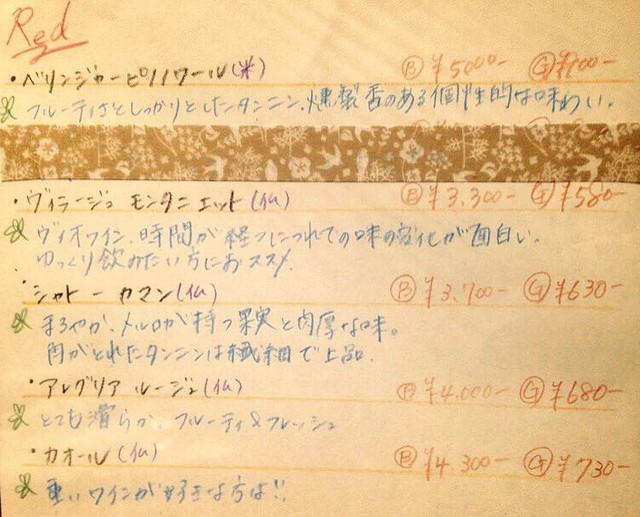 Red
・ベリンジャーピノノワール(米) Ⓑ¥5000- Ⓖ¥900-
フルーティさとしっかりとしたタンニン、燻製香のある個性的な味わい。
・ヴィラージュ モンタニエット(仏) Ⓑ¥3,300- Ⓖ¥580-
ヴィオワイン、時間が経つにつれての味の変化が面白い。
ゆっくり飲みたい方におススメ
・シャトーカマン(仏) Ⓑ¥3,700- Ⓖ¥630-
まろやか、メルロが持つ果実と肉厚な味。
角がとれたタンニンは繊細で上品。
・アレグリア ルージュ(仏) Ⓑ¥4,000- Ⓖ¥680-
とても滑らか。フルーティ&フレッシュ
・カオール(仏) Ⓑ¥4,300- Ⓖ¥730-
重いワインが好きな方は!!